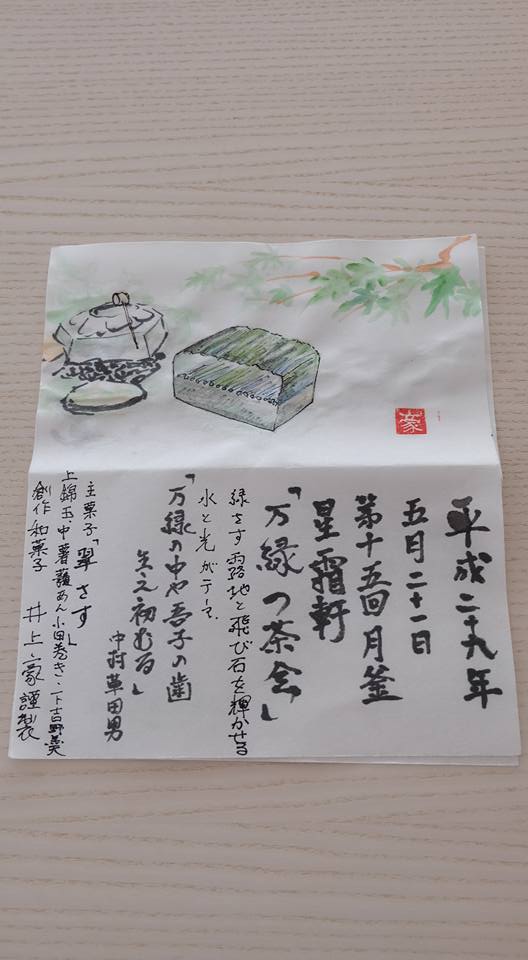 平成二十九年
五月二十一日
第十五回月釜
星霜軒
「万緑の茶会」
緑さす露地と飛び石を輝かせる
水と光がテーマ、
「万緑の中や吾子の歯
生え初むる」
中村草田男
主菓子「翠さす」
上錦玉、中薯蕷あん小田巻き、下吉野羹
創作和菓子 井上豪謹製
豪